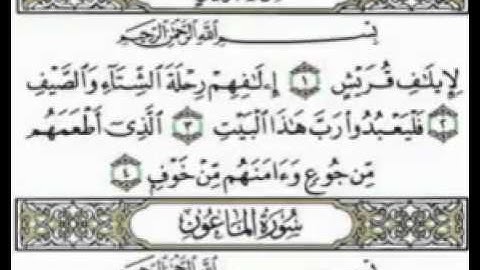 بِسْمِ ٱللَّهِ ٱلرَّحْمَٰنِ ٱلرَّحِيمِ
لِإِيلَٰفِ قُرَيْشٍ ۝١ إِۦلَٰفِهِمْ رِحْلَةَ ٱلشِّتَآءِ وَٱلصَّيْفِ
۝٢ فَلْيَعْبُدُوا۟ رَبَّ هَٰذَا ٱلْبَيْتِ ۝٣ ٱلَّذِىٓ أَطْعَمَهُم
مِّن جُوعٍ وَءَامَنَهُم مِّنْ خَوْفٍۭ ۝٤
سُورَةُ ٱلْمَاعُونِ
بِسْمِ ٱللَّهِ ٱلرَّحْمَٰنِ ٱلرَّحِيمِ